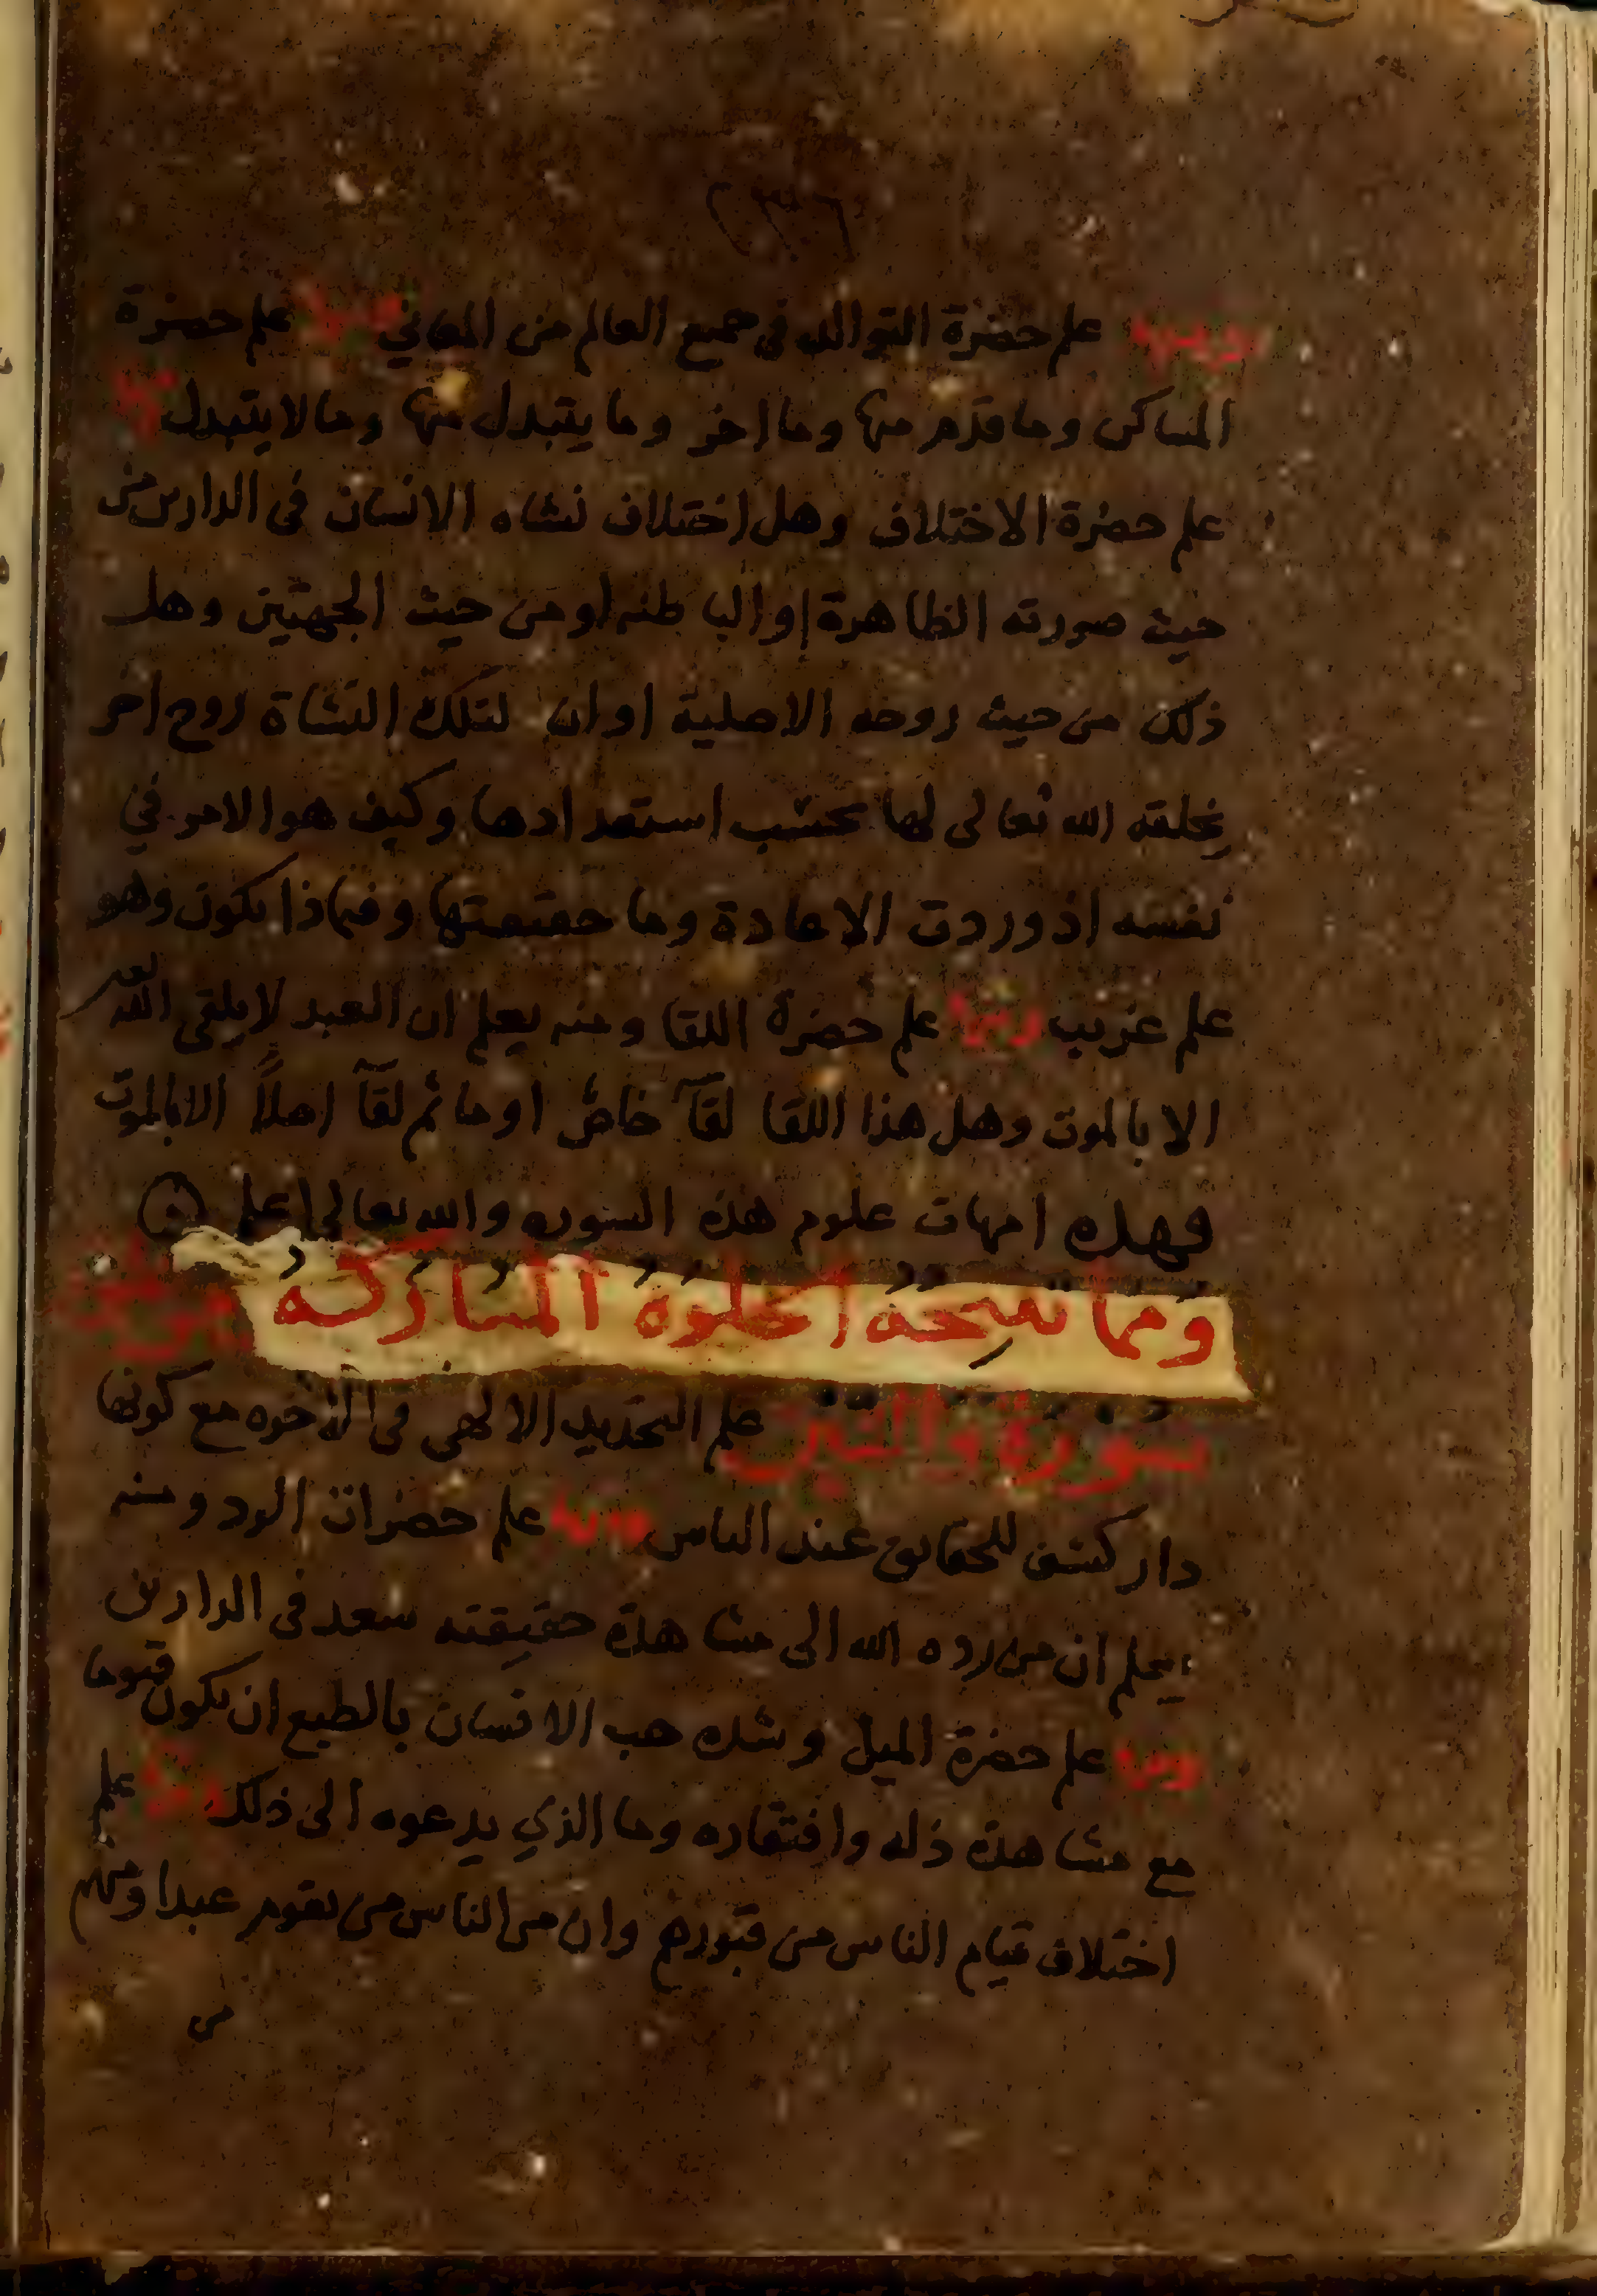 ٢٣٦
ومنها علم حضرة التوالد في جميع العالم من المعاني ومنها علم حضرة
المساكن وما قدم منها وما اخر وما يتبدل منها وما لا يتبدل ومنها
علم حضرة الاختلاف وهل اختلاف نشاه الانسان في الدارين من
حيث صورته الظاهرة او الباطنه او من حيث الجهتين وهل
ذلك من حيث روحه الاصلية او ان لتلك النشاة روح اخر
يخلقه الله تعالى لها بحسب استعدادها وكيف هو الامر في
نفسه اذ وردت الاعادة وما حقيقتها وفيماذا يكون وهو
علم غريب ومنها علم حضرة اللقا ومنه يعلم ان العبد لا يلقى الله
الا بالموت وهل هذا اللقا لقآ خاص او ما ثم لقآ اصلاً الا بالموت
فهذه امهات علوم هذه السوره والله تعالى اعلم
ومما نتيجة الخلوة المباركة من علوم
سورة والتين علم التحديد الالهي في الاخره مع كونها
دار كشف للحقايق عند الناس ومنها علم حضرات الرد ومنه
يعلم ان من رده الله الى مشاهدة حقيقته سعد في الدارين
ومنها علم حضرة الميل وشده حب الانسان بالطبع ان يكون قيوما
مع مشاهدة ذله وافتقاره وما الذي يدعوه الى ذلك ومنها علم
اختلاف قيام الناس من قبورهم وان من الناس من يقوم عبدا ومنهم
من